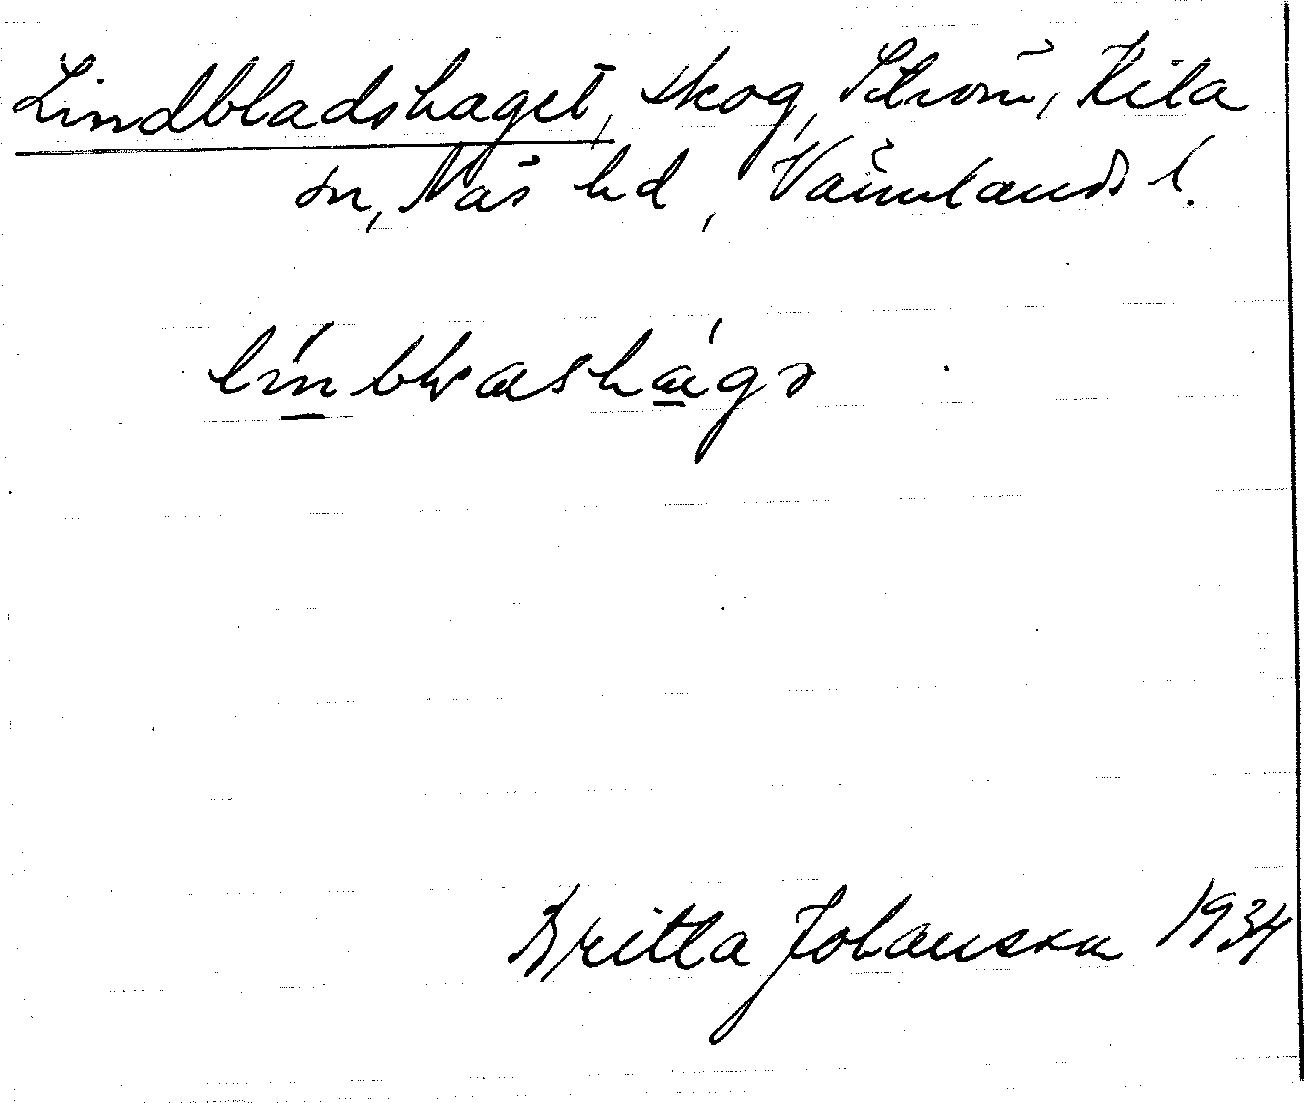 Lindbladshaget, skog, Ström, Kila
sn, Näs hd, Värmlands l.
Britta Johansson 1934